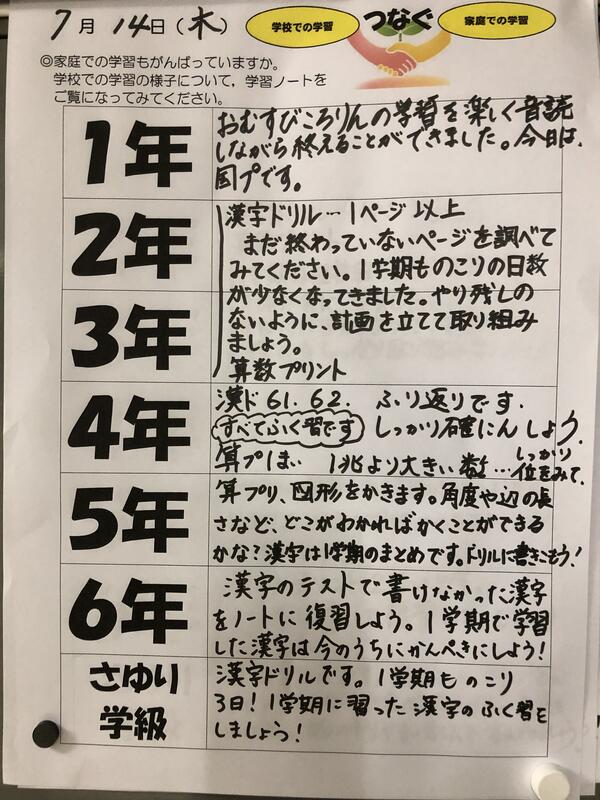 7月 14日(木)
学校での学習
つなぐ
家庭での学習
◎家庭での学習もがんばっていますか。
学校での学習の様子について,学習ノートを
ご覧になってみてください。
1年
おむすびころりんの学習を楽しく音読
しながら終えることができました。今日は、
国プです。
2年
3年
漢字ドリル…1ページ以上
まだ終わっていないページを調べて
みてください。1学期ものこりの日数
が少なくなってきました。やり残しの
ないように、計画を立てて取り組み
ましょう。
算数プリント
4年
漢ド 61. 62. ふり返りです.
すべてふく習です しっかり確にんしよう.
算プは… 1兆より大きい数…しっかり
位をみて.
5年
算プリ、図形をかきます。角度や辺の長
さなど、どこがわかればかくことができる
かな?漢字は1学期のまとめです。ドリルに書きこもう!
6年
漢字のテストで書けなかった漢字
をノートに復習しよう。1学期で学習
した漢字は今のうちにかんぺきにしよう!
さゆり
学級
漢字ドリルです。1学期ものこり
3日!1学期に習った漢字のふく習を
しましょう!